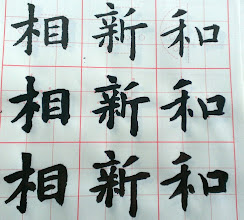 相新和
相新和
相新和